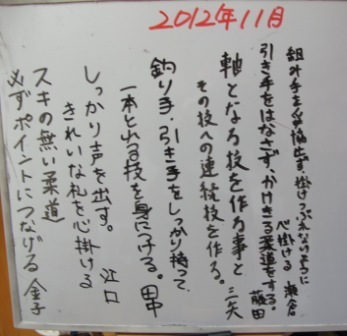 2012年11月
組み手を妥協せず、掛けつぶれないように
心掛ける 瀬倉
引き手をはなさず、かけきる柔道をする。
藤田
軸となる技を作る事と
その技への連続技を作る。三矢
釣り手・引き手をしっかり持って
一本とれる技を身につける。田中
しっかり声を出す。
きれいな礼を心掛ける 江口
スキの無い柔道
必ずポイントにつなげる 金子